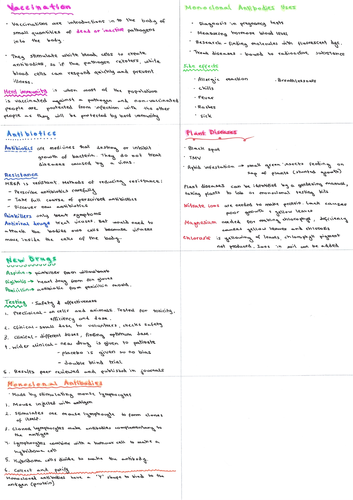 Vaccination
- Vaccinations are introductions into the body of
small quantities of dead or inactive pathogens
into the body.
- They stimulate white blood cells to create
antibodies, so if the pathogen reenters, white
blood cells can respond quickly and prevent
illness.
Herd immunity is when most of the population
is vaccinated against a pathogen and non-vaccinated
people are protected from infection while the other
people as they will be protected by herd immunity
Monoclonal Antibodies Uses
- Diagnosis in pregnancy tests
- Measuring hormone blood levels
- Research - finding molecules with fluorescent dye.
- Treat diseases - bound to radioactive substance
Side effects
- Allergic reaction
- Breathlessness
- Chills
- Fever
- Rashes
- Sick
Antibiotics
Antibiotics are medicines that destroy or inhibit
growth of bacteria. They do not treat
diseases caused by a virus.
Resistance
MRSA is resistant methods of reducing resistance:
- Prescribe antibiotics carefully
- Take full course of prescribed antibiotics
- Discover new antibiotics
Painkillers only treat symptoms
Antiviral drugs treat viruses. But much need to
attack the bodies own cells because viruses
move inside the cells of the body.
Plant Diseases
- Black spot
- TMV
- Aphid infestation → small green insects feeding on
top of plants (stunted growth)
Plant diseases can be identified by a gardening manual,
taking plants to lab or monoclonal testing kits
Nitrate ions are needed to make protein. Lack causes
poor growth + yellow leaves
Magnesium needed for making chlorophyll, deficiency
causes yellow leaves and chlorosis
Chlorosis is yellowing of leaves, chlorophyll pigment
not produced. Ions in soil can be added
New Drugs
Aspirin → painkiller from willow bark
Digitalis → heart drug from foxgloves
Penicillin → antibiotic from penicillium mould.
Testing - Safety & effectiveness
1. Preclinical - on cells and animals. Tested for toxicity,
efficiency and dose.
2. Clinical - small dose to volunteers, checks safety
3. Clinical - different doses, finding optimum dose.
4. Wider clinical - new drug is given to patients
- placebo is given so no bias
- double blind trial
5. Results peer reviewed and published in journals
Monoclonal Antibodies
- Made by stimulating mouse lymphocytes
1. Mouse injected with antigen
2. Stimulates one mouse lymphocyte to form clones
of itself.
3. Cloned lymphocytes make antibodies complementary to
the antigen
4. Lymphocytes combine with a tumour cell to make a
hybridoma cell
5. Hybridoma cells divide to make the antibody.
6. Collect and purify
Monoclonal antibodies have a "Y" shape to bind to the
antigen (protein)